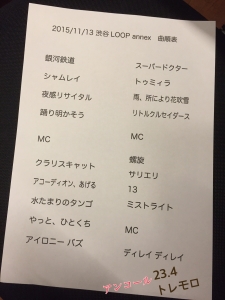 2015/11/13 渋谷 LOOP annex 曲順表
銀河鉄道
シャムレイ
夜感リサイタル
踊り明かそう
MC
クラリスキャット
アコーディオン、あげる
水たまりのタンゴ
やっと、ひとくち
アイロニー バズ
スーパードクター
トゥミィラ
雨、所により花吹雪
リトルクルセイダース
MC
螺旋
サリエリ
13
ミストライト
MC
ディレイ ディレイ
アンコール 23.4
トレモロ